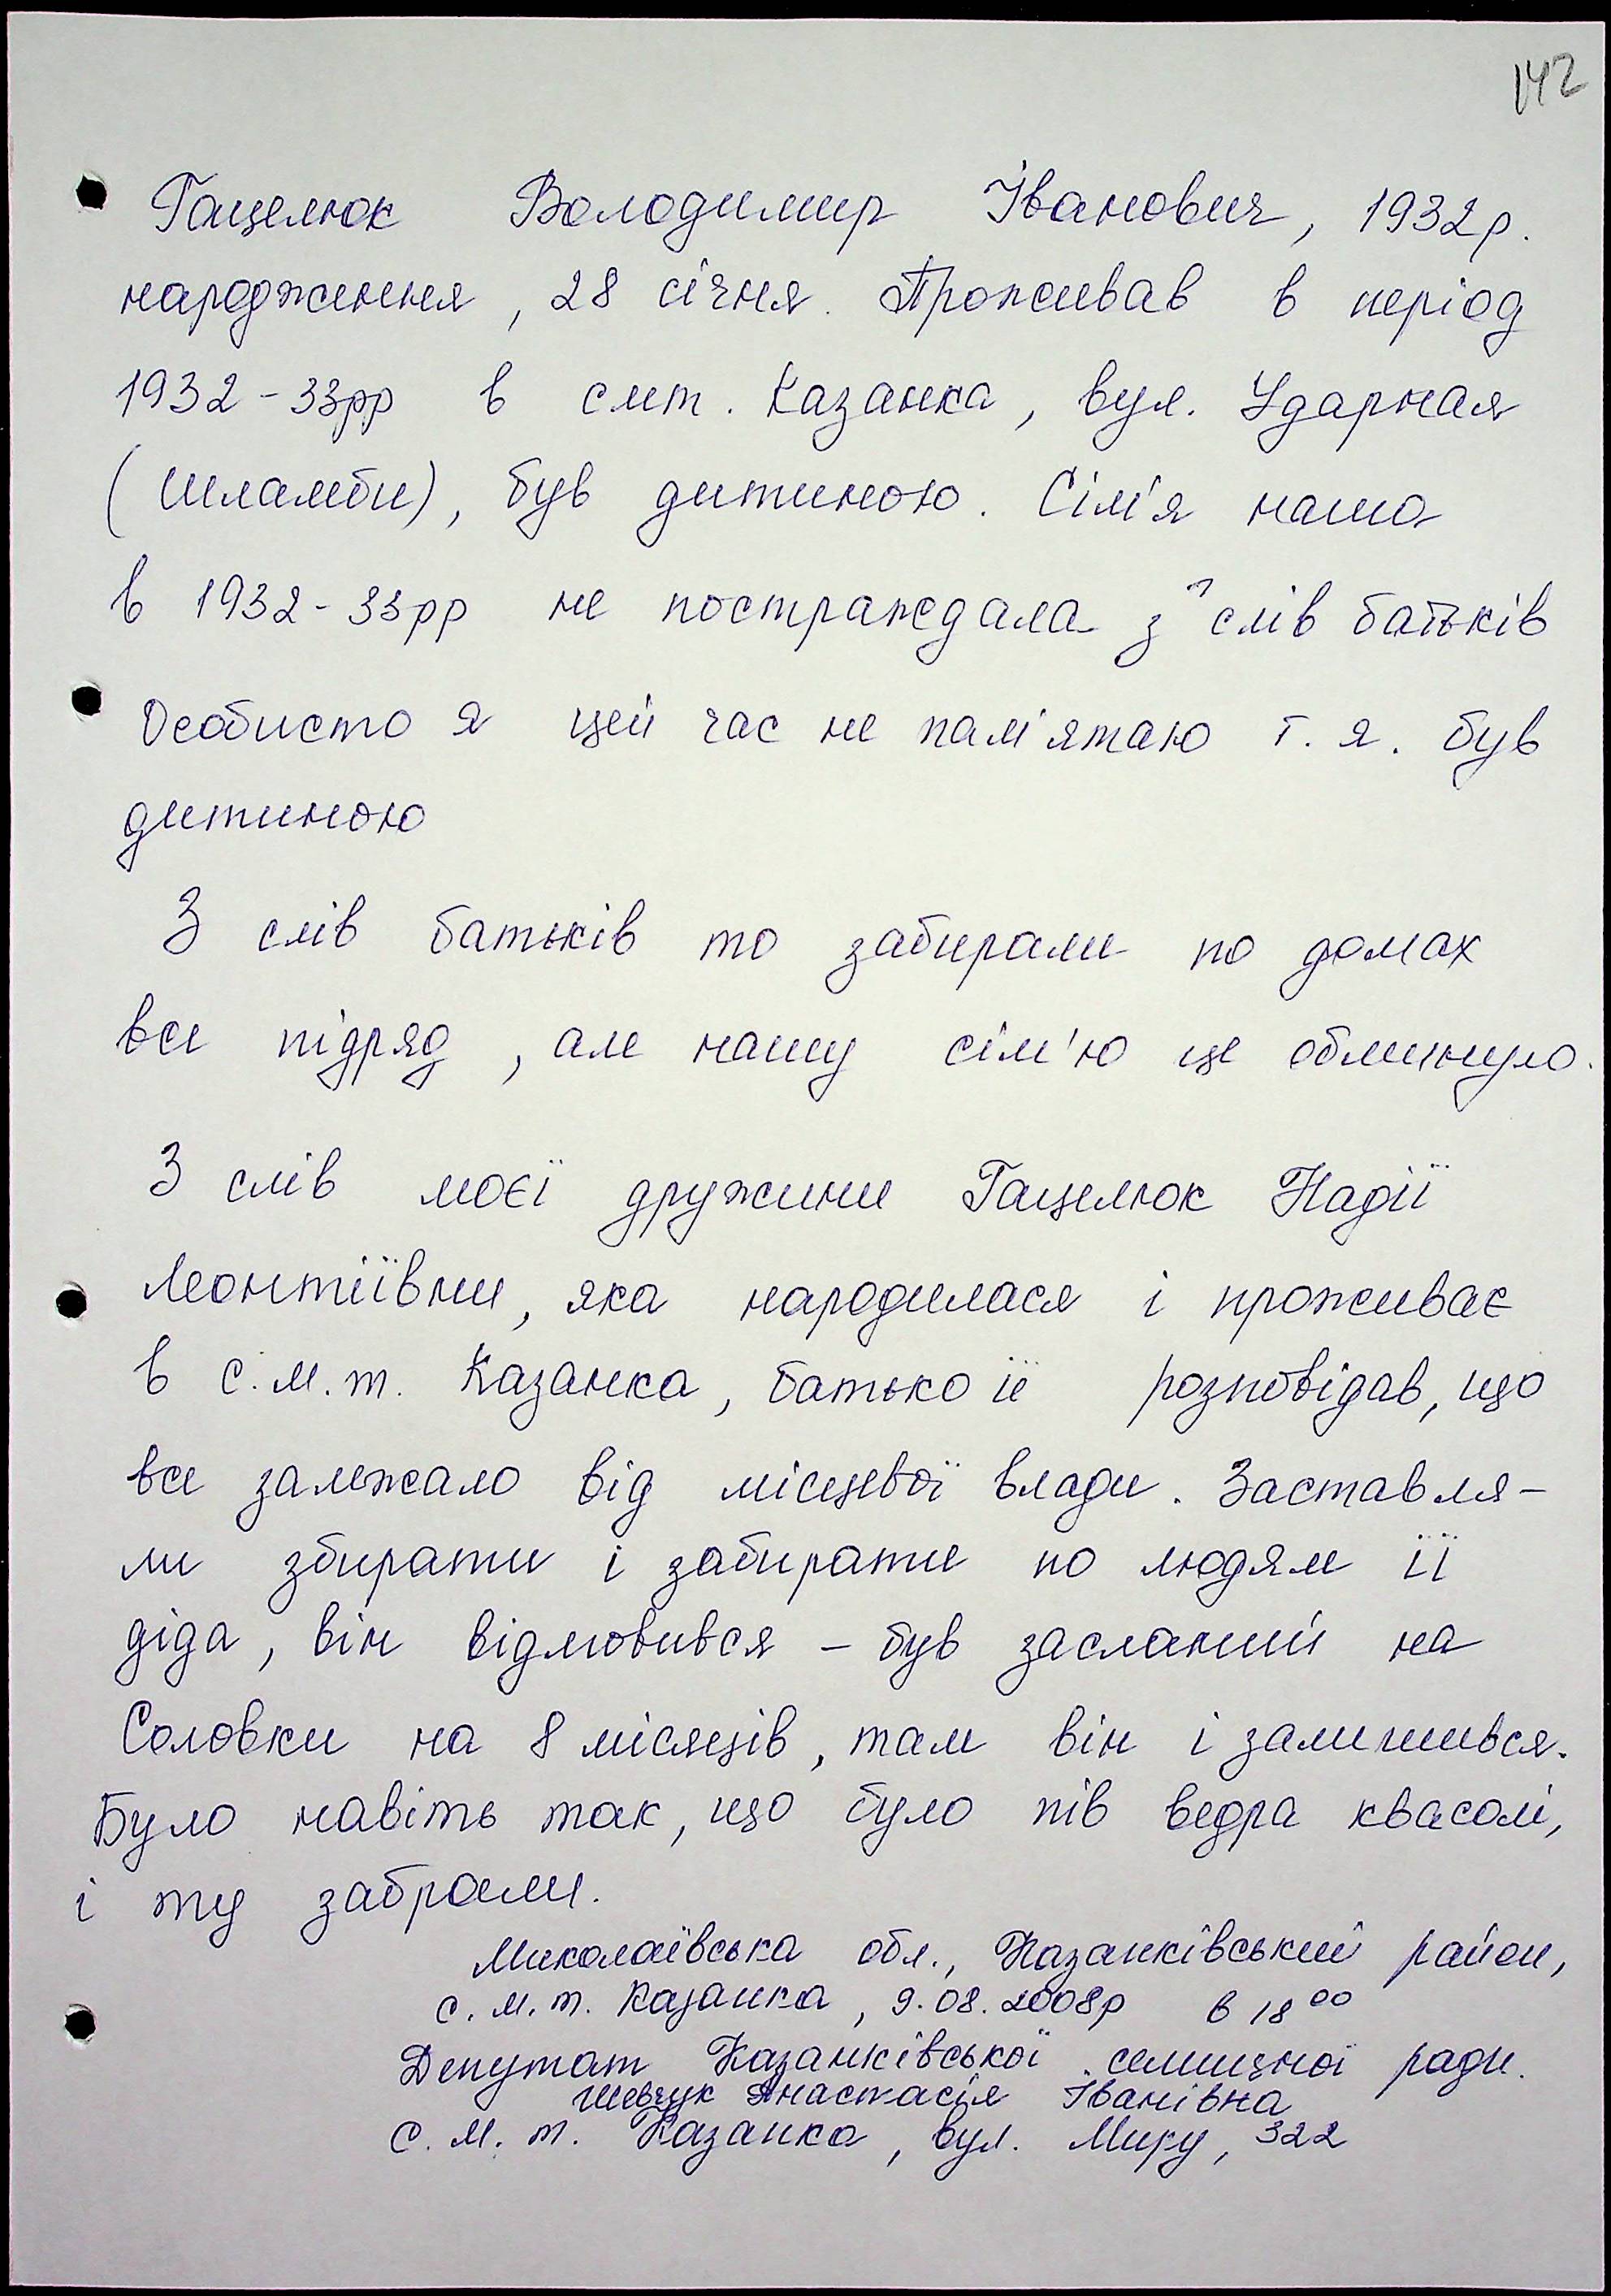 142
Гацелюк Володимир Іванович, 1932р.
народження, 28 січня. Проживав в період
1932-33рр в смт. Казанка, вул. Ударная
(Шламби), був дитиною. Сім'я наша
в 1932-33рр не постраждала з слів батьків
Особисто я цей час не пам'ятаю т. я. був
дитиною
З слів батьків то забирали по домах
все підряд, але нашу сім'ю це обминуло.
З слів моєї дружини Гацелюк Надії
Леонтіївни, яка народилася і проживає
в с.м.т. Казанка, батько її розповідав, що
все залежало від місцевої влади. Заставля-
ли збирати і забирати по людям її
діда, він відмовився - був засланий на
Соловки на 8 місяців, там він і залишився.
Було навіть так, що було пів ведра квасолі,
і ту забрали.
Миколаївська обл., Казанківський район,
с.м.т. Казанка, 9.08.2008р в 18 00
Депутат Казанківської селищної ради.
Шевчук Анастасія Іванівна
с.м.т. Казанка, вул. Миру, 322